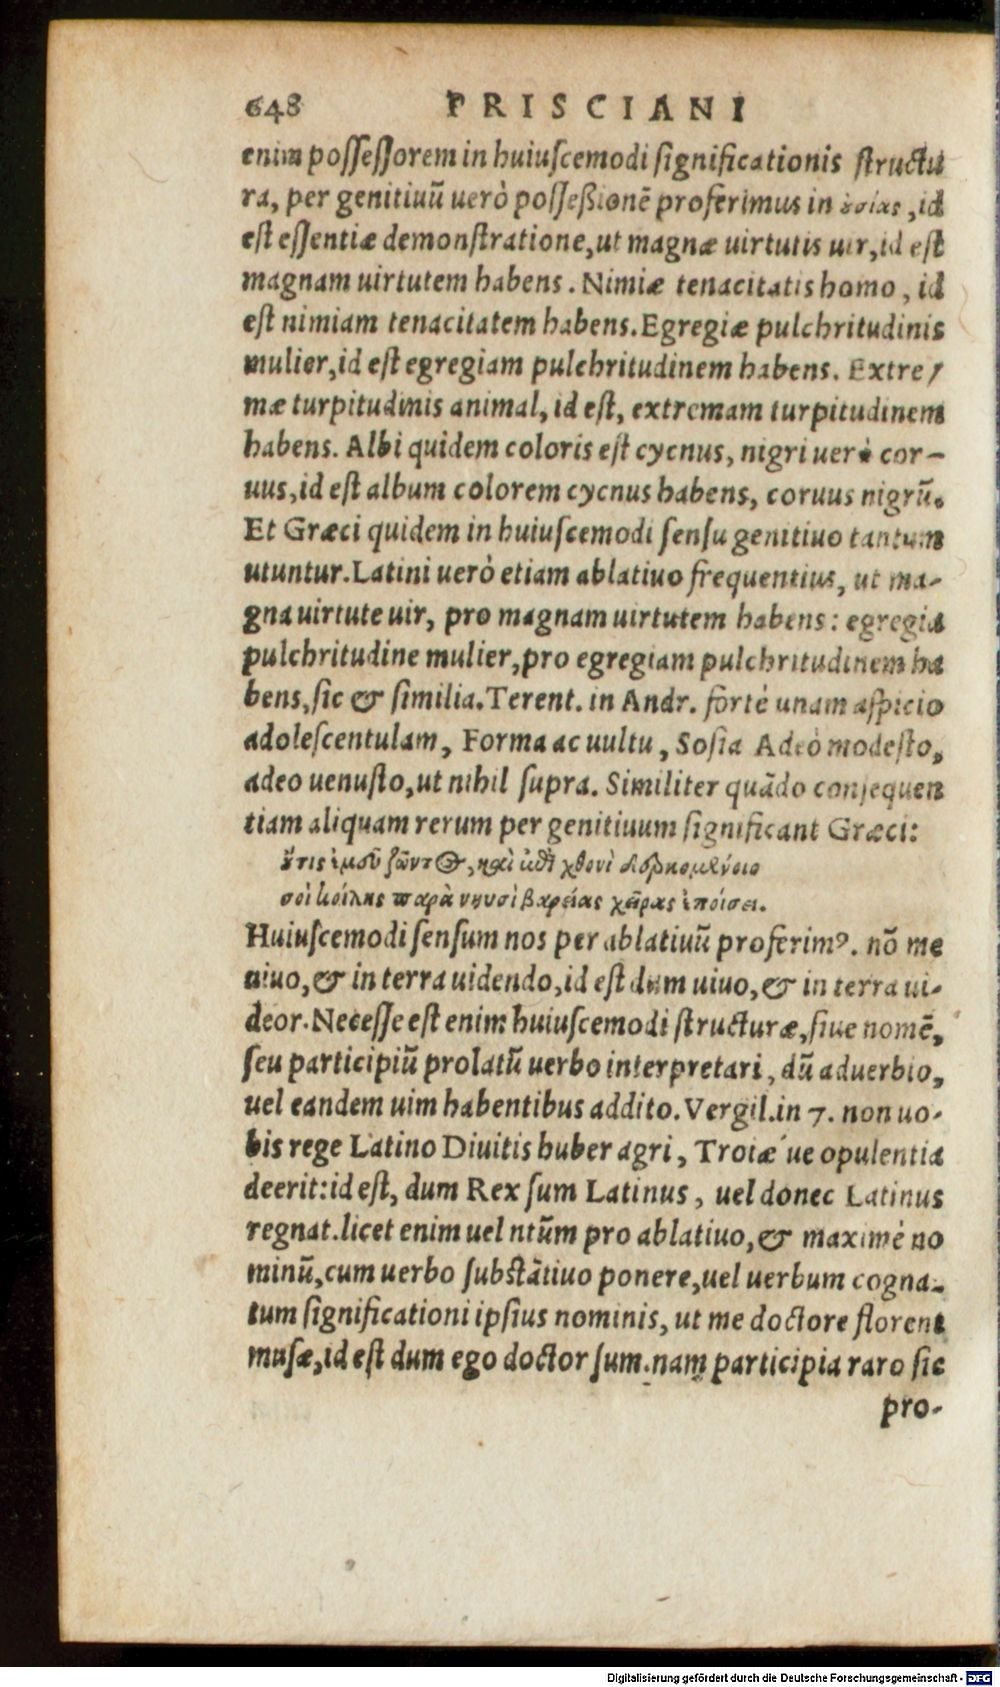 648 PRISCIANI
enim poſſeſſorem in huiuſcemodi ſignificationis ſtructu
ra, per genitiuũ uerò poſſeßionẽ proferimus in ȣσίας, id
eſt eſſentiæ demonſtratione, ut magnæ uirtutis uir, id eſt
magnam uirtutem habens. Nimiæ tenacitatis homo, id
eſt nimiam tenacitatem habens. Egregiæ pulchritudinis
mulier, id eſt egregiam pulchritudinem habens. Extre/
mæ turpitudinis animal, id eſt, extremam turpitudinem
habens. Albi quidem coloris eſt cycnus, nigri uerò cor-
uus, id eſt album colorem cycnus habens, coruus nigrũ.
Et Græci quidem in huiuſcemodi ſenſu genitiuo tantum
utuntur. Latini uerò etiam ablatiuo frequentius, ut ma-
gna uirtute uir, pro magnam uirtutem habens: egregia
pulchritudine mulier, pro egregiam pulchritudinem ha
bens, ſic & ſimilia. Terent. in Andr. fortè unam aſpicio
adoleſcentulam, Forma ac uultu, Soſia Adeò modeſto,
adeo uenuſto, ut nihil ſupra. Similiter quãdo conſequen
tiam aliquam rerum per genitiuum ſignificant Græci:
ὔτις ἐμοῦ ζῶντος, καὶ ἐπὶ χθονὶ δερκομένοιο
σοὶ κοίλης παρὰ νηυσὶ βαρείας χεῖρας ἐποίσει.
Huiuſcemodi ſenſum nos per ablatiuũ proferimꝰ. nõ me
uiuo, & in terra uidendo, id eſt dum uiuo, & in terra ui-
deor. Neceſſe eſt enim huiuſcemodi ſtructuræ, ſiue nomẽ,
ſeu participiũ prolatũ uerbo interpretari, dũ aduerbio,
uel eandem uim habentibus addito. Vergil. in 7. non uo-
bis rege Latino Diuitis huber agri, Troiæ ́ue opulentia
deerit: id eſt, dum Rex ſum Latinus, uel donec Latinus
regnat. licet enim uel ntũm pro ablatiuo, & maximè no
minũ, cum uerbo ſubſtãtiuo ponere, uel uerbum cogna-
tum ſignificationi ipſius nominis, ut me doctore florent
muſæ, id eſt dum ego doctor ſum. nam participia raro ſic
pro-
Digitalisierung gefördert durch die Deutsche Forschungsgemeinschaft - DFG